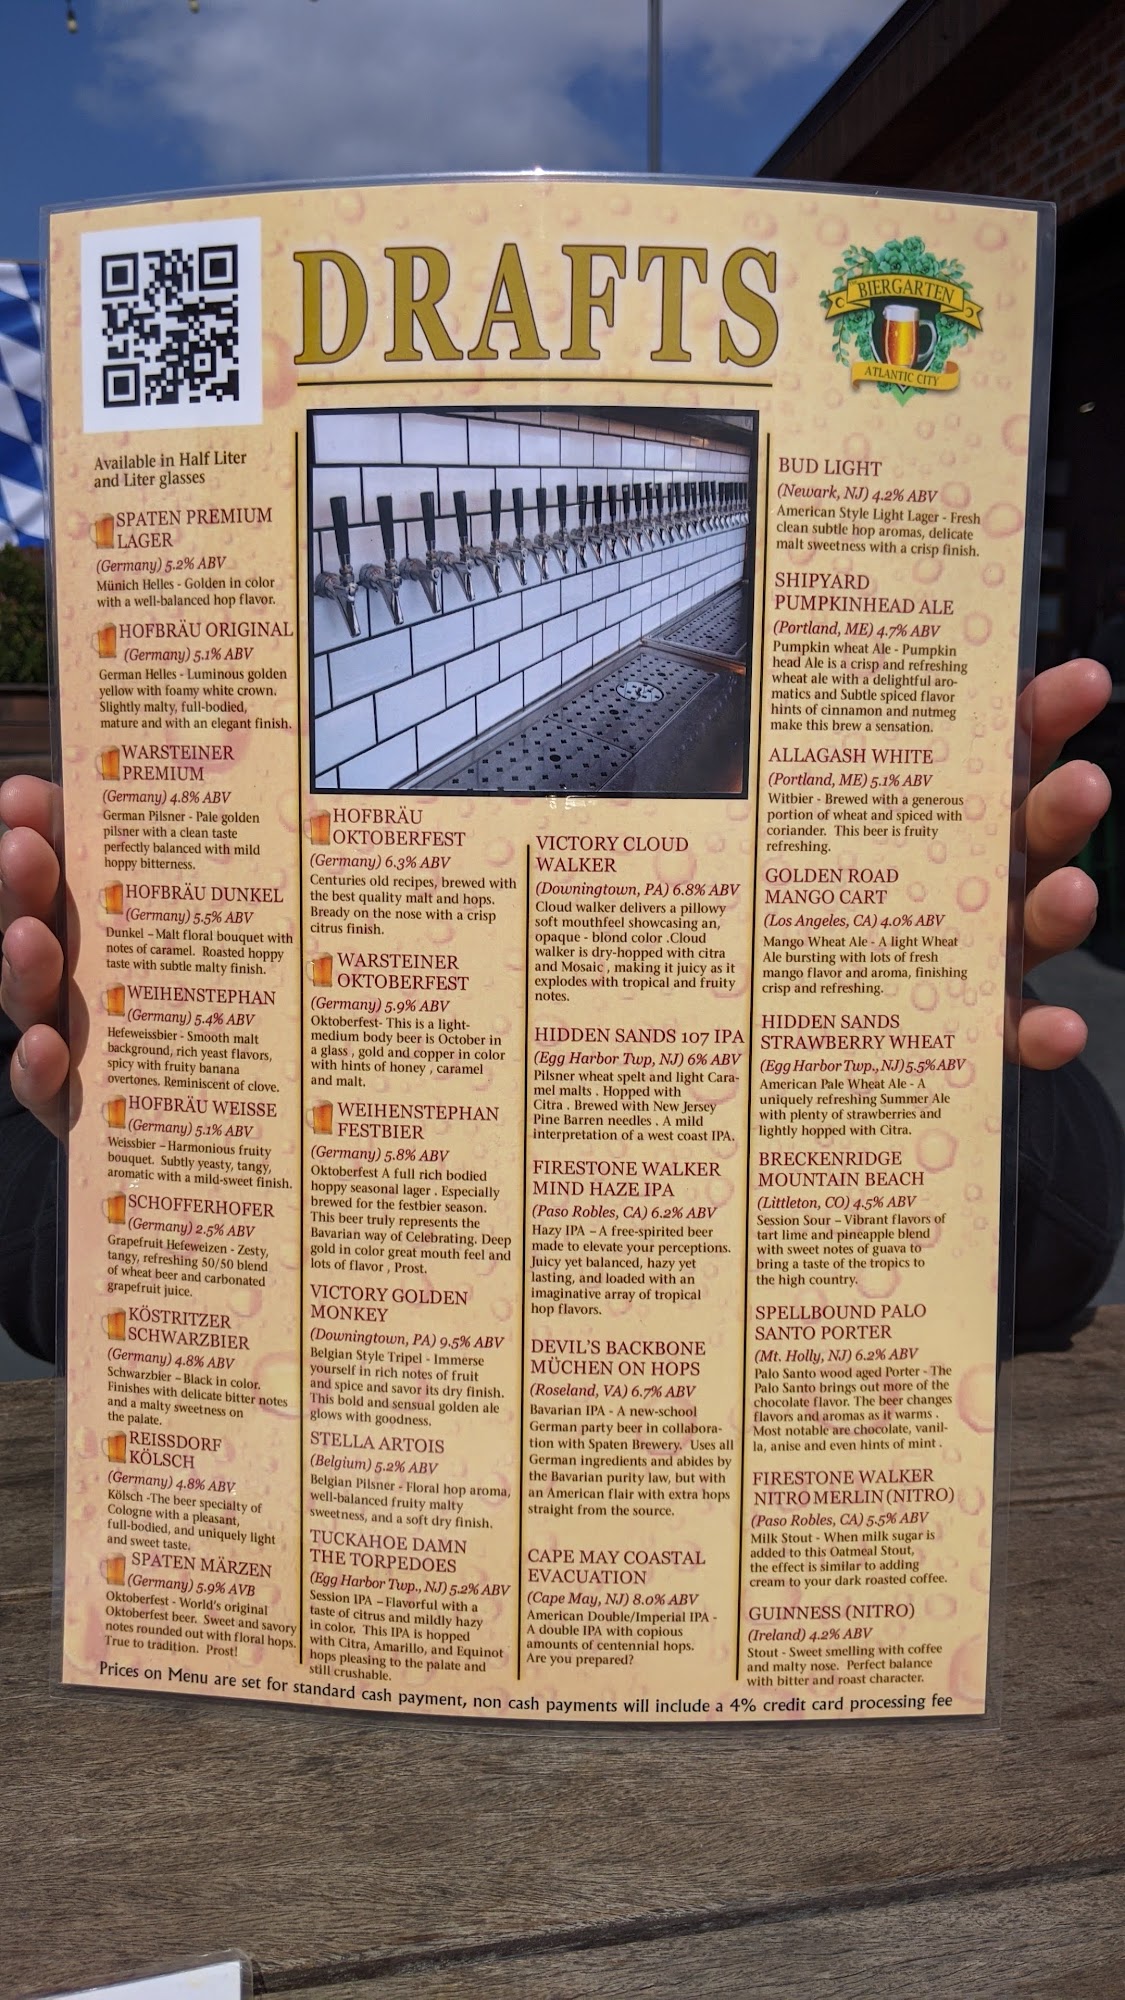 DRAFTS
BIERGARTEN
ATLANTIC CITY
Available in Half Liter
and Liter glasses
SPATEN PREMIUM
LAGER
(Germany) 5.2% ABV
Münich Helles - Golden in color
with a well-balanced hop flavor.
HOFBRÄU ORIGINAL
(Germany) 5.1% ABV
German Helles - Luminous golden
yellow with foamy white crown.
Slightly malty, full-bodied,
mature and with an elegant finish.
WARSTEINER
PREMIUM
(Germany) 4.8% ABV
German Pilsner - Pale golden
pilsner with a clean taste
perfectly balanced with mild
hoppy bitterness.
HOFBRÄU DUNKEL
(Germany) 5.5% ABV
Dunkel – Malt floral bouquet with
notes of caramel. Roasted hoppy
taste with subtle malty finish.
WEIHENSTEPHAN
(Germany) 5.4% ABV
Hefeweissbier - Smooth malt
background, rich yeast flavors,
spicy with fruity banana
overtones. Reminiscent of clove.
HOFBRÄU WEISSE
(Germany) 5.1% ABV
Weissbier – Harmonious fruity
bouquet. Subtly yeasty, tangy,
aromatic with a mild-sweet finish.
SCHOFFERHOFER
(Germany) 2.5% ABV
Grapefruit Hefeweizen - Zesty,
tangy, refreshing 50/50 blend
of wheat beer and carbonated
grapefruit juice.
KÖSTRITZER
SCHWARZBIER
(Germany) 4.8% ABV
Schwarzbier – Black in color.
Finishes with delicate bitter notes
and a malty sweetness on
the palate.
REISSDORF
KÖLSCH
(Germany) 4.8% ABV
Kölsch -The beer specialty of
Cologne with a pleasant,
full-bodied, and uniquely light
and sweet taste.
SPATEN MÄRZEN
(Germany) 5.9% AVB
Oktoberfest - World's original
Oktoberfest beer. Sweet and savory
notes rounded out with floral hops.
True to tradition. Prost!
HOFBRÄU
OKTOBERFEST
(Germany) 6.3% ABV
Centuries old recipes, brewed with
the best quality malt and hops.
Bready on the nose with a crisp
citrus finish.
WARSTEINER
OKTOBERFEST
(Germany) 5.9% ABV
Oktoberfest- This is a light-
medium body beer is October in
a glass , gold and copper in color
with hints of honey , caramel
and malt.
WEIHENSTEPHAN
FESTBIER
(Germany) 5.8% ABV
Oktoberfest A full rich bodied
hoppy seasonal lager . Especially
brewed for the festbier season.
This beer truly represents the
Bavarian way of Celebrating. Deep
gold in color great mouth feel and
lots of flavor , Prost.
VICTORY GOLDEN
MONKEY
(Downingtown, PA) 9.5% ABV
Belgian Style Tripel - Immerse
yourself in rich notes of fruit
and spice and savor its dry finish.
This bold and sensual golden ale
glows with goodness.
STELLA ARTOIS
(Belgium) 5.2% ABV
Belgian Pilsner - Floral hop aroma,
well-balanced fruity malty
sweetness, and a soft dry finish.
TUCKAHOE DAMN
THE TORPEDOES
(Egg Harbor Twp., NJ) 5.2% ABV
Session IPA – Flavorful with a
taste of citrus and mildly hazy
in color. This IPA is hopped
with Citra, Amarillo, and Equinot
hops pleasing to the palate and
still crushable.
VICTORY CLOUD
WALKER
(Downingtown, PA) 6.8% ABV
Cloud walker delivers a pillowy
soft mouthfeel showcasing an,
opaque - blond color .Cloud
walker is dry-hopped with citra
and Mosaic , making it juicy as it
explodes with tropical and fruity
notes.
HIDDEN SANDS 107 IPA
(Egg Harbor Twp, NJ) 6% ABV
Pilsner wheat spelt and light Cara-
mel malts . Hopped with
Citra . Brewed with New Jersey
Pine Barren needles . A mild
interpretation of a west coast IPA.
FIRESTONE WALKER
MIND HAZE IPA
(Paso Robles, CA) 6.2% ABV
Hazy IPA – A free-spirited beer
made to elevate your perceptions.
Juicy yet balanced, hazy yet
lasting, and loaded with an
imaginative array of tropical
hop flavors.
DEVIL'S BACKBONE
MÜCHEN ON HOPS
(Roseland, VA) 6.7% ABV
Bavarian IPA - A new-school
German party beer in collabora-
tion with Spaten Brewery. Uses all
German ingredients and abides by
the Bavarian purity law, but with
an American flair with extra hops
straight from the source.
CAPE MAY COASTAL
EVACUATION
(Cape May, NJ) 8.0% ABV
American Double/Imperial IPA -
A double IPA with copious
amounts of centennial hops.
Are you prepared?
BUD LIGHT
(Newark, NJ) 4.2% ABV
American Style Light Lager - Fresh
clean subtle hop aromas, delicate
malt sweetness with a crisp finish.
SHIPYARD
PUMPKINHEAD ALE
(Portland, ME) 4.7% ABV
Pumpkin wheat Ale - Pumpkin
head Ale is a crisp and refreshing
wheat ale with a delightful aro-
matics and Subtle spiced flavor
hints of cinnamon and nutmeg
make this brew a sensation.
ALLAGASH WHITE
(Portland, ME) 5.1% ABV
Witbier - Brewed with a generous
portion of wheat and spiced with
coriander. This beer is fruity
refreshing.
GOLDEN ROAD
MANGO CART
(Los Angeles, CA) 4.0% ABV
Mango Wheat Ale - A light Wheat
Ale bursting with lots of fresh
mango flavor and aroma, finishing
crisp and refreshing.
HIDDEN SANDS
STRAWBERRY WHEAT
(Egg Harbor Twp., NJ) 5.5% ABV
American Pale Wheat Ale - A
uniquely refreshing Summer Ale
with plenty of strawberries and
lightly hopped with Citra.
BRECKENRIDGE
MOUNTAIN BEACH
(Littleton, CO) 4.5% ABV
Session Sour – Vibrant flavors of
tart lime and pineapple blend
with sweet notes of guava to
bring a taste of the tropics to
the high country.
SPELLBOUND PALO
SANTO PORTER
(Mt. Holly, NJ) 6.2% ABV
Palo Santo wood aged Porter - The
Palo Santo brings out more of the
chocolate flavor. The beer changes
flavors and aromas as it warms .
Most notable are chocolate, vanil-
la, anise and even hints of mint .
FIRESTONE WALKER
NITRO MERLIN (NITRO)
(Paso Robles, CA) 5.5% ABV
Milk Stout - When milk sugar is
added to this Oatmeal Stout,
the effect is similar to adding
cream to your dark roasted coffee.
GUINNESS (NITRO)
(Ireland) 4.2% ABV
Stout - Sweet smelling with coffee
and malty nose. Perfect balance
with bitter and roast character.
Prices on Menu are set for standard cash payment, non cash payments will include a 4% credit card processing fee